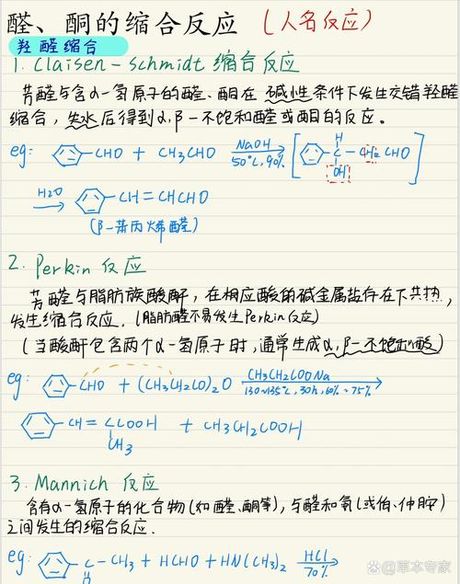 醛、酮的缩合反应 (人名反应)
羟醛缩合
1. Claisen-Schmidt 缩合反应
芳醛与含α-氢原子的醛、酮在碱性条件下发生交错羟醛
缩合，失水后得到α,β-不饱和醛或酮的反应。
eg: -CHO + CH3CHO NaOH 50℃, 90% [ H -C-CH2CHO OH ]
H2O -CH=CHCHO
(β-苯丙烯醛)
2. Perkin 反应
芳醛与脂肪族酸酐，在相应酸的碱金属盐存在下共热，
发生缩合反应. (脂肪醛不易发生Perkin反应)
(当酸酐包含两个α-氢原子时，通常生成α,β-不饱和酸)
eg: -CHO + (CH3CH2CO)2O CH3CH2COONa 130~135℃, 30h, 60%~75%
-CH=CCOOH + CH3CH2COOH
CH3
3. Mannich 反应
含有α-氢原子的化合物(如醛、酮等)，与醛和氨(或伯、仲胺)
之间发生的缩合反应.
eg: -C-CH3 + HCHO + HN(CH3)2 HCl 70%
知乎 @草本专家